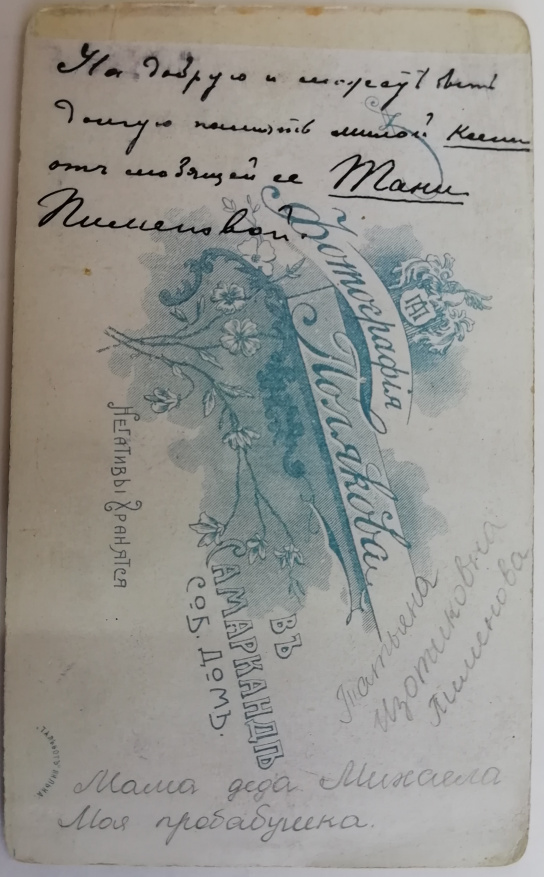 На добрую и можетъ быть
долгую память милой Ксени
отъ любящей ее Тани
Пименовой.
Фотографія
Полякова
въ
Самаркандѣ
соб. домъ.
Негативы хранятся
Татьяна
Изотиковна
Пименова
Мама деда Михаела
Моя пробабушка.